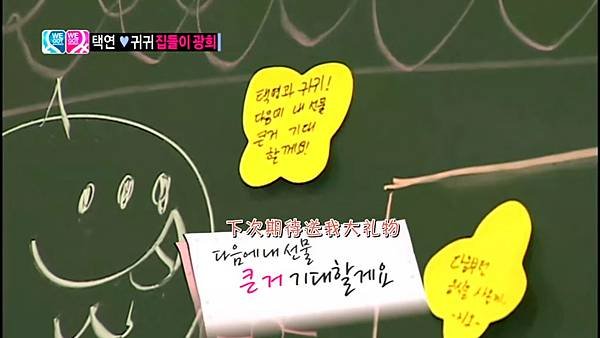 택연 ♥ 귀귀 집들이 광희
택연과 귀귀!
다음에 내 선물
큰거 기대
할께요!
下次期待送我大礼物
다음에 내 선물
큰 거 기대할게요
다음부턴
음식을